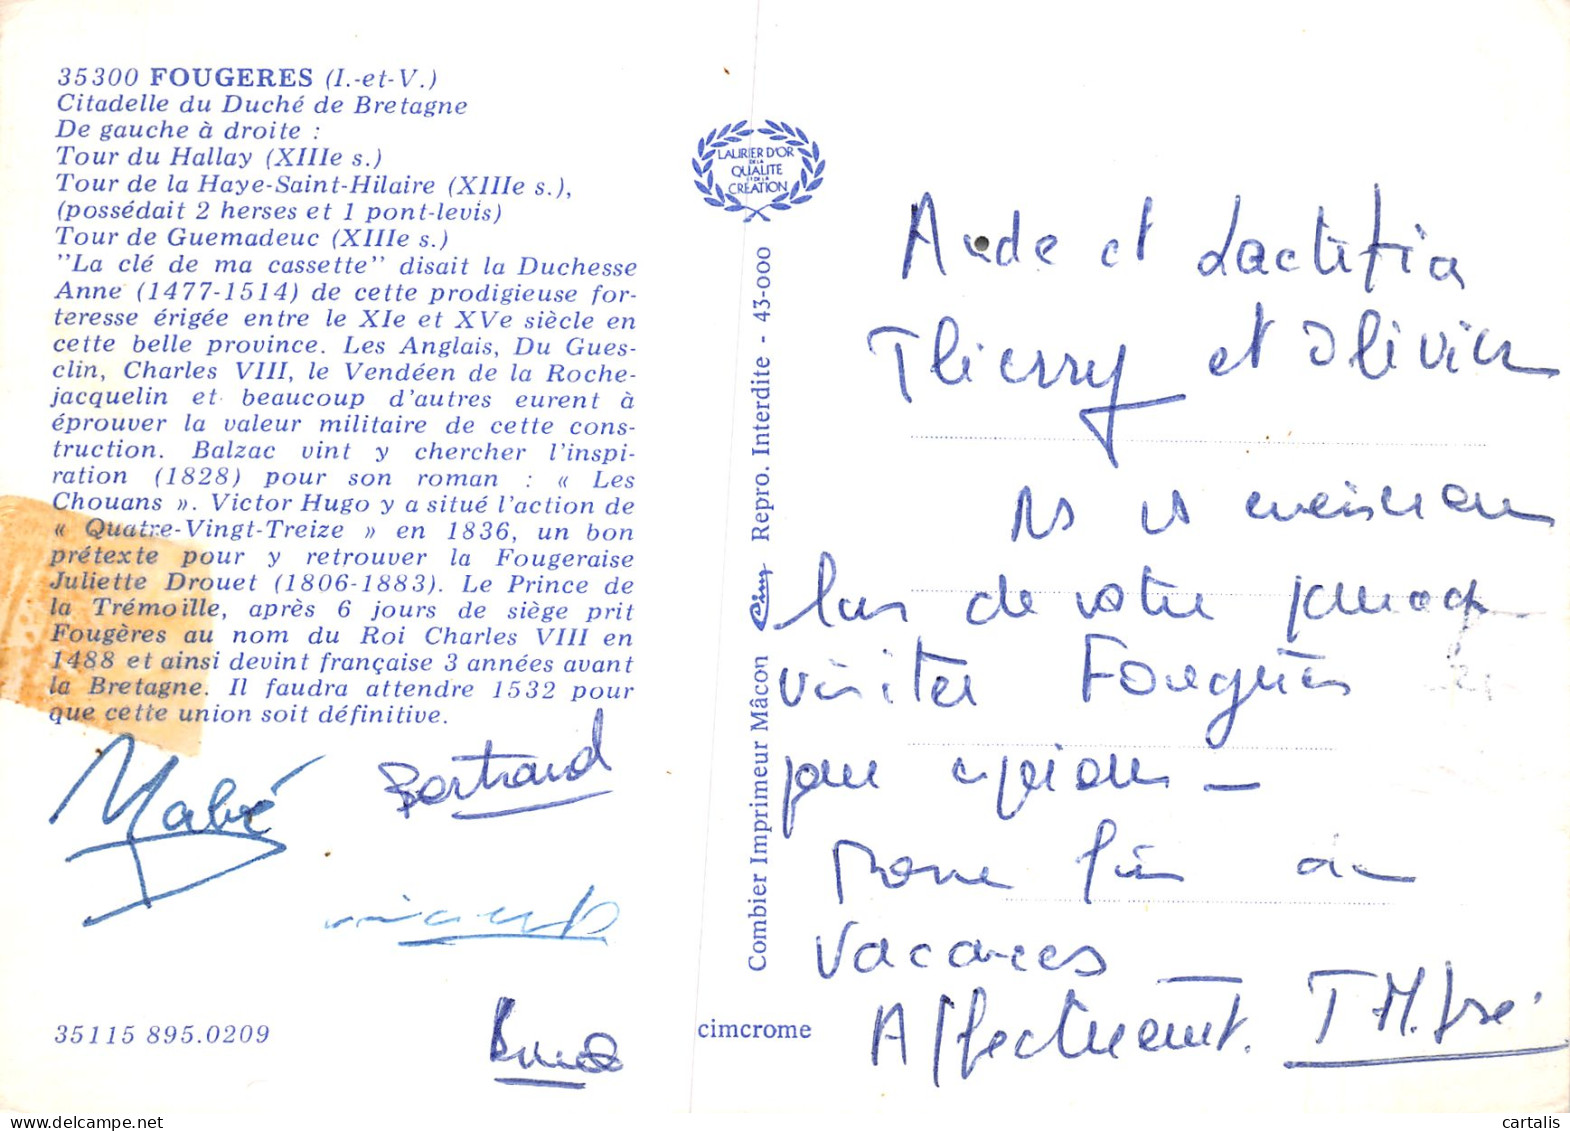 35300 FOUGERES (I.-et-V.)
Citadelle du Duché de Bretagne
De gauche à droite :
Tour du Hallay (XIIIe s.)
Tour de la Haye-Saint-Hilaire (XIIIe s.),
(possédait 2 herses et 1 pont-levis)
Tour de Guemadeuc (XIIIe s.)
"La clé de ma cassette" disait la Duchesse
Anne (1477-1514) de cette prodigieuse for-
teresse érigée entre le XIe et XVe siècle en
cette belle province. Les Anglais, Du Gues-
clin, Charles VIII, le Vendéen de la Roche-
jacquelin et beaucoup d'autres eurent à
éprouver la valeur militaire de cette cons-
truction. Balzac vint y chercher l'inspi-
ration (1828) pour son roman : « Les
Chouans ». Victor Hugo y a situé l'action de
« Quatre-Vingt-Treize » en 1836, un bon
prétexte pour y retrouver la Fougeraise
Juliette Drouet (1806-1883). Le Prince de
la Trémoille, après 6 jours de siège prit
Fougères au nom du Roi Charles VIII en
1488 et ainsi devint française 3 années avant
la Bretagne. Il faudra attendre 1532 pour
que cette union soit définitive.
Mabé
Bertrand
Vincent
35115 895.0209
LAURIER D'OR
DE LA
QUALITE
ET DE LA
CREATION
Combier Imprimeur Mâcon Cim Repro. Interdite - 43-000
cimcrome
Aude et Laetitia
Thierry et Olivier
de votre
visiter Fougères
Bonne fin de
vacances
Affectueusement.
cartalis